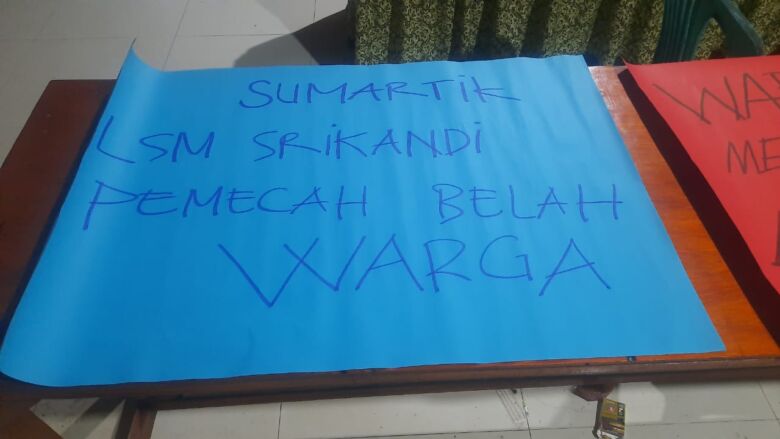 SUMARTIK
LSM SRIKANDI
PEMECAH BELAH
WARGA
WA
ME